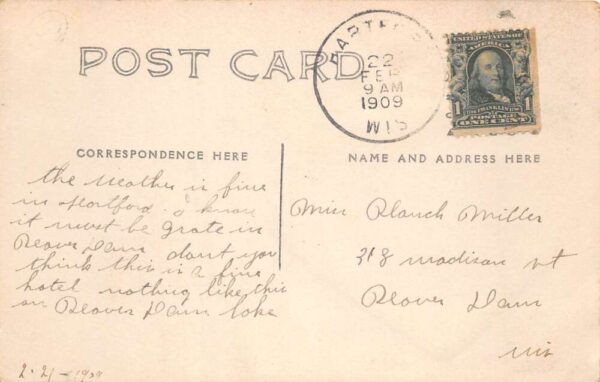 POST CARD
HARTFORD
22
FEB
9 AM
1909
WIS
UNITED STATES OF AMERICA
1 1
FRANKLIN
POSTAGE
ONE CENT
CORRESPONDENCE HERE
the Weather is fine
in Hartford. I know
it must be grate in
Beaver Dam dont you
think this is a fine
hotel nothing like this
on Beaver Dam lake
2-21-1909
NAME AND ADDRESS HERE
Miss Blanch Miller
318 madison st
Beaver Dam
Wis